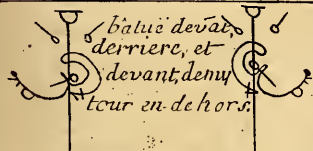 bâtuë devāt,
derriere, et
devant, demy
tour en-dehors.